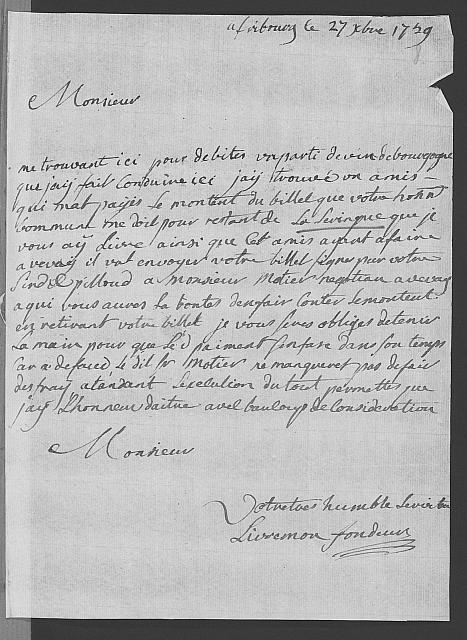 a fribourg le 27 xbre 1729
Monsieur
me trouvant ici pour debites un parti de vin de bourgogne
que jaij fait Conduire ici jaij trouvé un amis
qui mat paijes le montent du billet que votre
Commune me doit pour restant de La Seringue que je
vous aij Livre ainsi que Cet amis aiant afaire
a vevaij il vat envoyer votre billet signe par votre
Sindic pilloud a Monsieur Motier negotian a vevaij
a qui vous aures la bontes den fair Conter le montent
en retirant votre billet je vous seres obliges de tenir
La main pour que Le paiment sen fase dans son temps
Car a defaud Le dit Sr Motier ne manqueret pas de fair
des fraij atandant Lexecution du tout permettes que
jaij Lhonneur daitre avec baucoup de Consideration
Monsieur
Votre tres humble Serviteur
Livremon fondeur